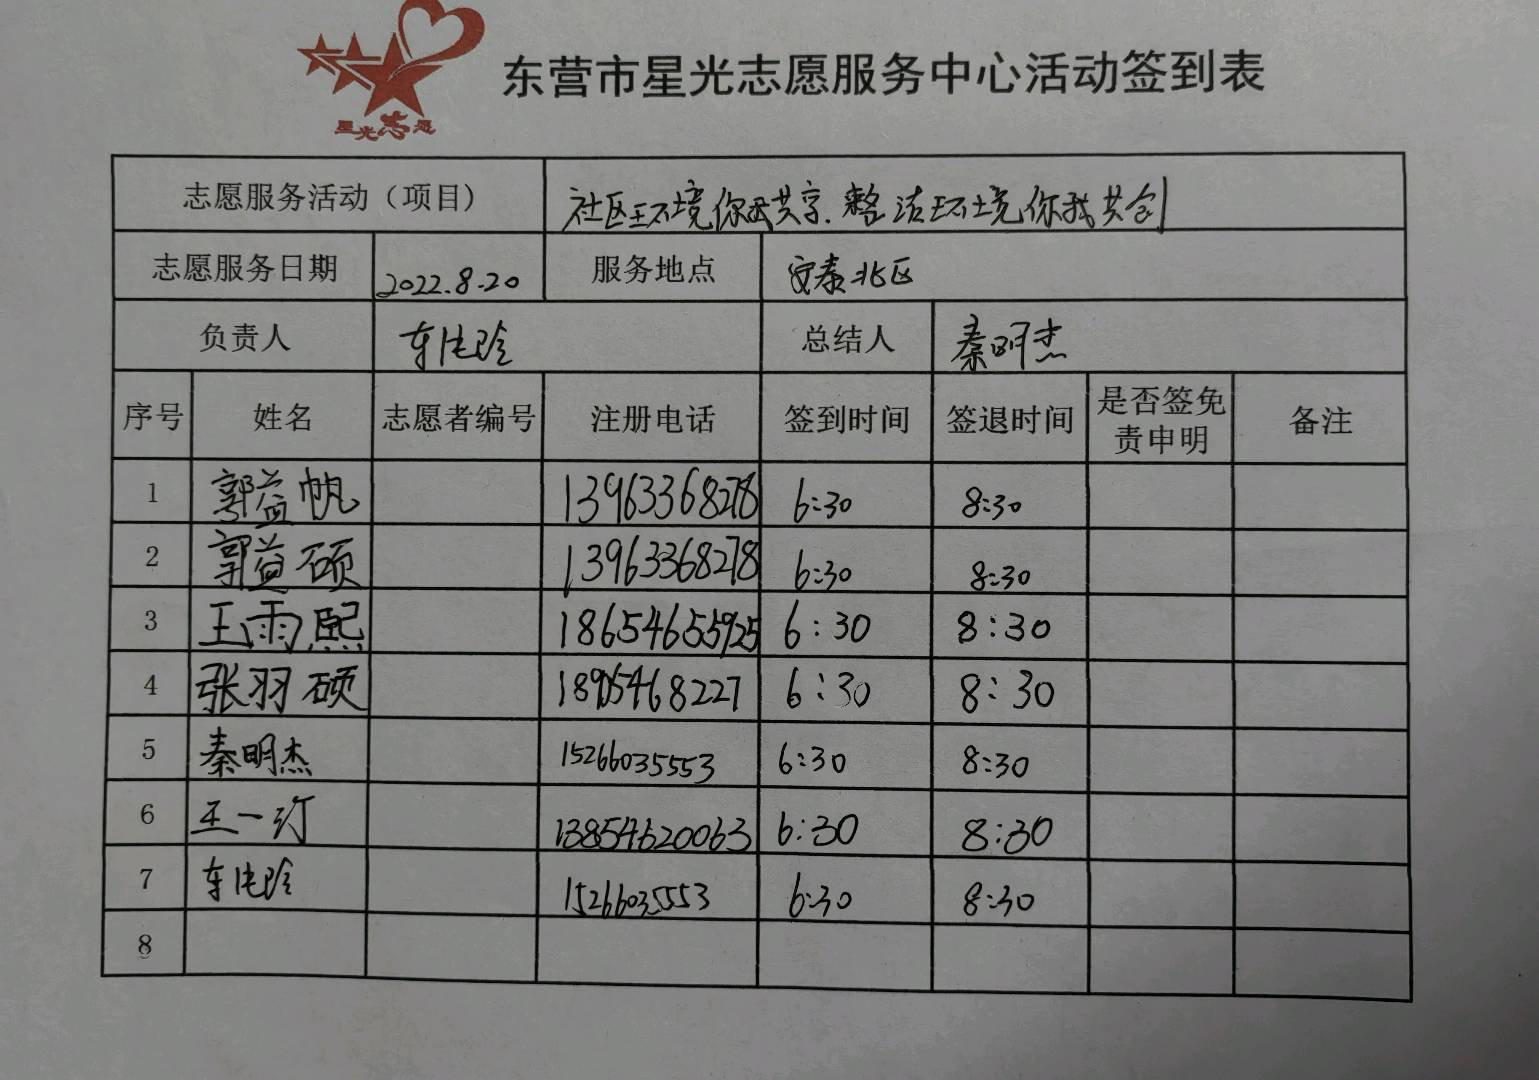 星光志愿
东营市星光志愿服务中心活动签到表
志愿服务活动（项目） 社区环境你我共享.整洁环境你我共创
志愿服务日期 2022.8.20 服务地点 安泰北区
负责人 总结人 秦明杰
序号 姓名 志愿者编号 注册电话 签到时间 签退时间 是否签免责申明 备注
1 郭益帆 13963368278 6:30 8:30
2 郭益硕 13963368278 6:30 8:30
3 王雨熙 18654655925 6:30 8:30
4 张羽硕 18905468227 6:30 8:30
5 秦明杰 15266035553 6:30 8:30
6 王一汀 13854620063 6:30 8:30
7 15266035553 6:30 8:30
8